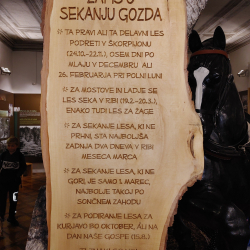 SEKANJU GOZDA
* TA PRAVI ALI TA DELAVNI LES
PODRETI V ŠKORPIJONU
(24.10.-22.11.), OSEM DNI PO
MLAJU V DECEMBRU ALI
26. FEBRUARJA PRI POLNI LUNI
* ZA MOSTOVE IN LADJE SE
LES SEKA V RIBI (19.2.-20.3.),
ENAKO TUDI LES ZA ŽAGE
* ZA SEKANJE LESA, KI NE
PRHNI, STA NAJBOLJŠA
ZADNJA DVA DNEVA V RIBI
MESECA MARCA
* ZA SEKANJE LESA, KI NE
GORI, JE SAMO 1. MAREC,
NAJBOLJE TAKOJ PO
SONČNEM ZAHODU
* ZA PODIRANJE LESA ZA
KURJAVO BO OKTOBER, ALI NA
DAN NAŠE GOSPE (15.8.)